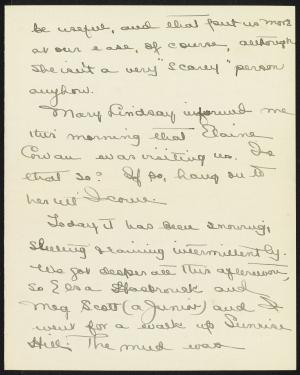 be useful, and that put us more
at our ease, of course, although
she isn't a very "scarey" person
anyhow.
Mary Lindsay informed me
this morning that Elaine
Cowan was visiting us. Is
that so? If so, hang on to
her till I come.
Today it has been snowing,
sleeting & raining intermittently.
We got desperate this afternoon,
so Elsa Hasbrouck and
Meg Scott (a Junior) and I
went for a walk up Sunrise
Hill. The mud was